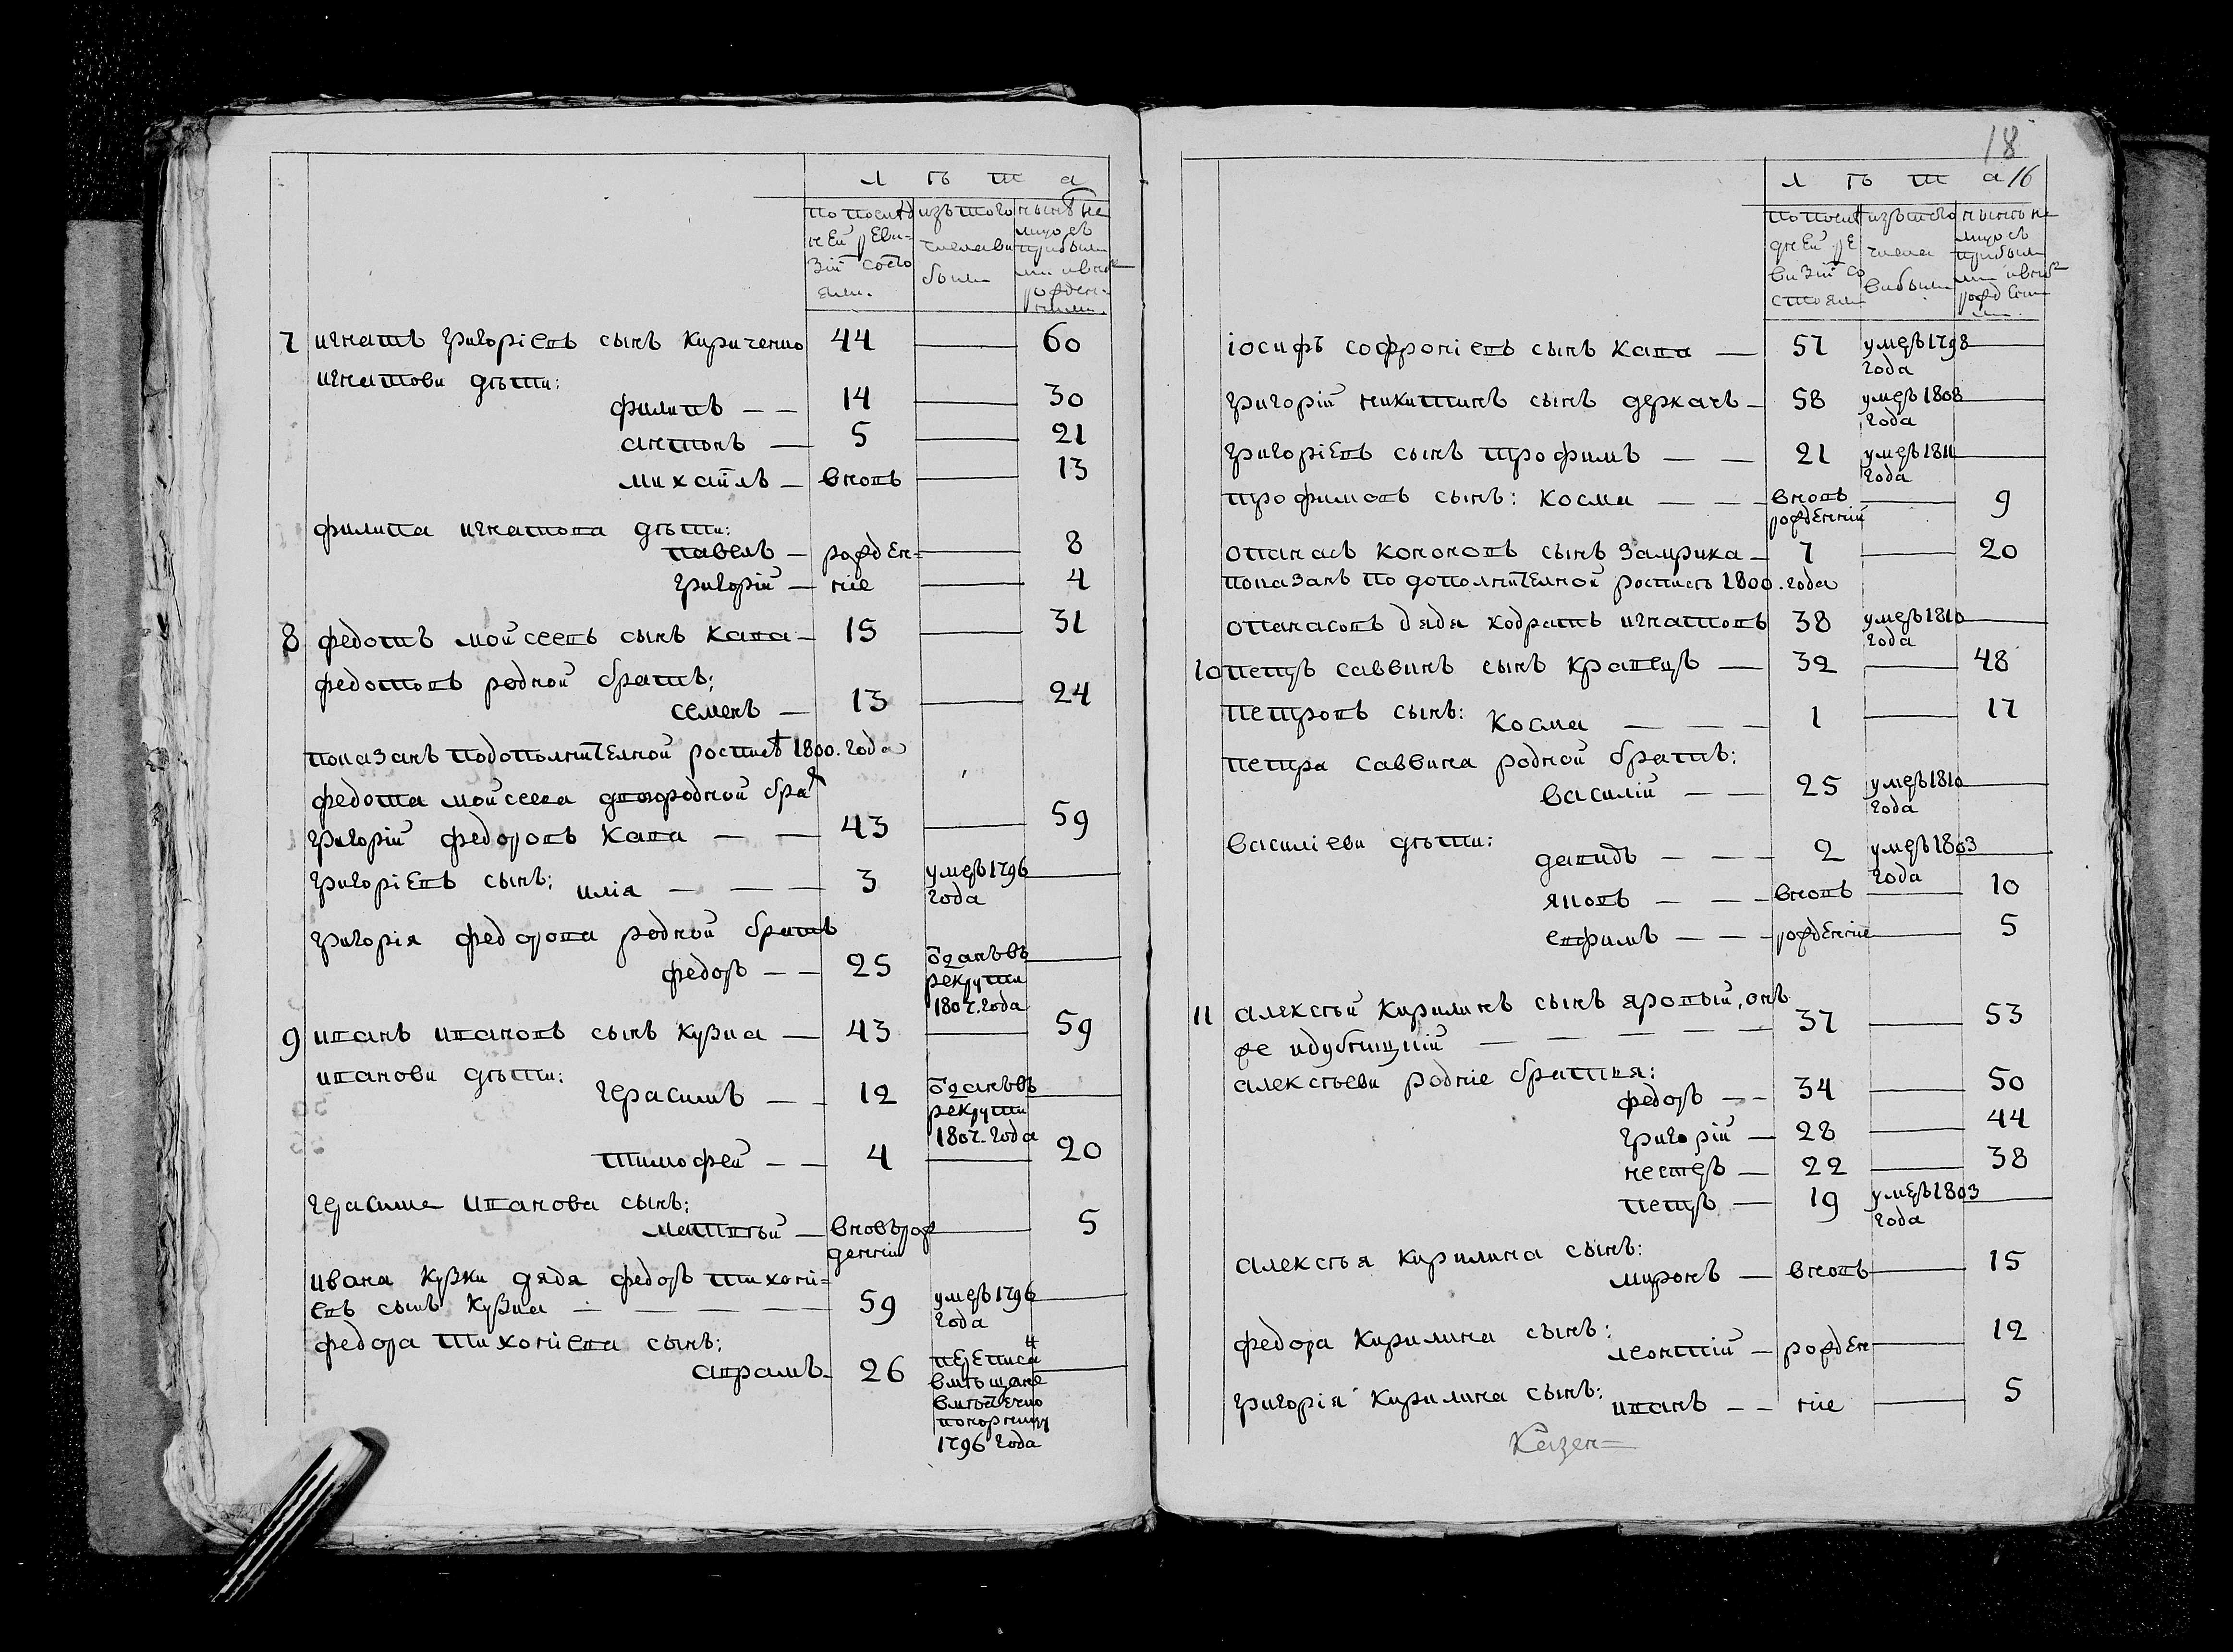 Л ѣ т а
по послѣд изъ того нынѣ на
ней реви- числа вы лицо съ
зіи состо были прибыли
яли. рожден-
7 игнатъ григоріевъ сынъ кириченко 44 — 60
игнатови дѣти:
филипъ — — 14 — 30
антонъ — 5 — 21
михайлъ — вновь — 13
филипа игнатова дѣти:
павелъ — рожден- — 8
григорій — ніе — 4
8 федотъ мойсеевъ сынъ кава — 15 — 31
федотовъ родной братъ:
семенъ — 13 — 24
показанъ подополнителной росписѣ 1800. года
федота мойсеева двоюродной братъ
григорій федоровъ кава — — 43 — 59
григоріевъ сынъ: илія — — — 3 умеръ 1796 —
года
григорія федорова родной братъ
федоръ — — 25 отданъ въ —
рекруты
1807. года
9 иванъ ивановъ сынъ курка — 43 — 59
иванови дѣти:
герасимъ — — 12 отданъ въ —
рекруты
1807. года
тимофей — — 4 — 20
герасима иванова сынъ:
матвѣй — вновь рож — 5
денній
ивана курки дядя федоръ тихоні-
евъ сынъ курка — — — — 59 умеръ 1796 —
года
федора тихоніева сынъ:
аврамъ — 26 переписан —
вмѣщане
вмѣстечко
1796 года
18
Л ѣ т а 16
по послѣ изъ того нынѣ на
дней ре числа лицо съ
визіи со выбыли прибыли
стояли
іосифъ софроніевъ сынъ кава — 57 умеръ 1798 —
года
григорій никитинъ сынъ деркачъ — 58 умеръ 1808 —
года
григоріевъ сынъ трофимъ — — 21 умеръ 1811 —
года
трофимовъ сынъ: косма — — — вновь — 9
рожденній
опанасъ кононовъ сынъ замрика — 7 — 20
показанъ по дополнителной росписѣ 1800. года
опанасовъ дядя кодратъ игнатовъ 38 умеръ 1810 —
года
10 петръ саввинъ сынъ кравецъ — 32 — 48
петровъ сынъ: косма — — — 1 — 17
петра саввина родной братъ:
василій — — 25 умеръ 1810 —
года
василіеви дѣти:
давидъ — — — 2 умеръ 1803 —
года
яковъ — — — вновь — 10
ефимъ — — — рожденніе — 5
11 алексѣй кирилинъ сынъ яровый, онъ
же — — — — 37 — 53
алексѣеви родніе братія:
федоръ — — 34 — 50
григорій — 28 — 44
нестеръ — 22 — 38
петръ — 19 умеръ 1803 —
года
алексѣя кирилина сынъ:
миронъ — вновь — 15
федора кирилина сынъ:
леонтій — рожден — 12
григорія кирилина сынъ:
иванъ — — ніе — 5